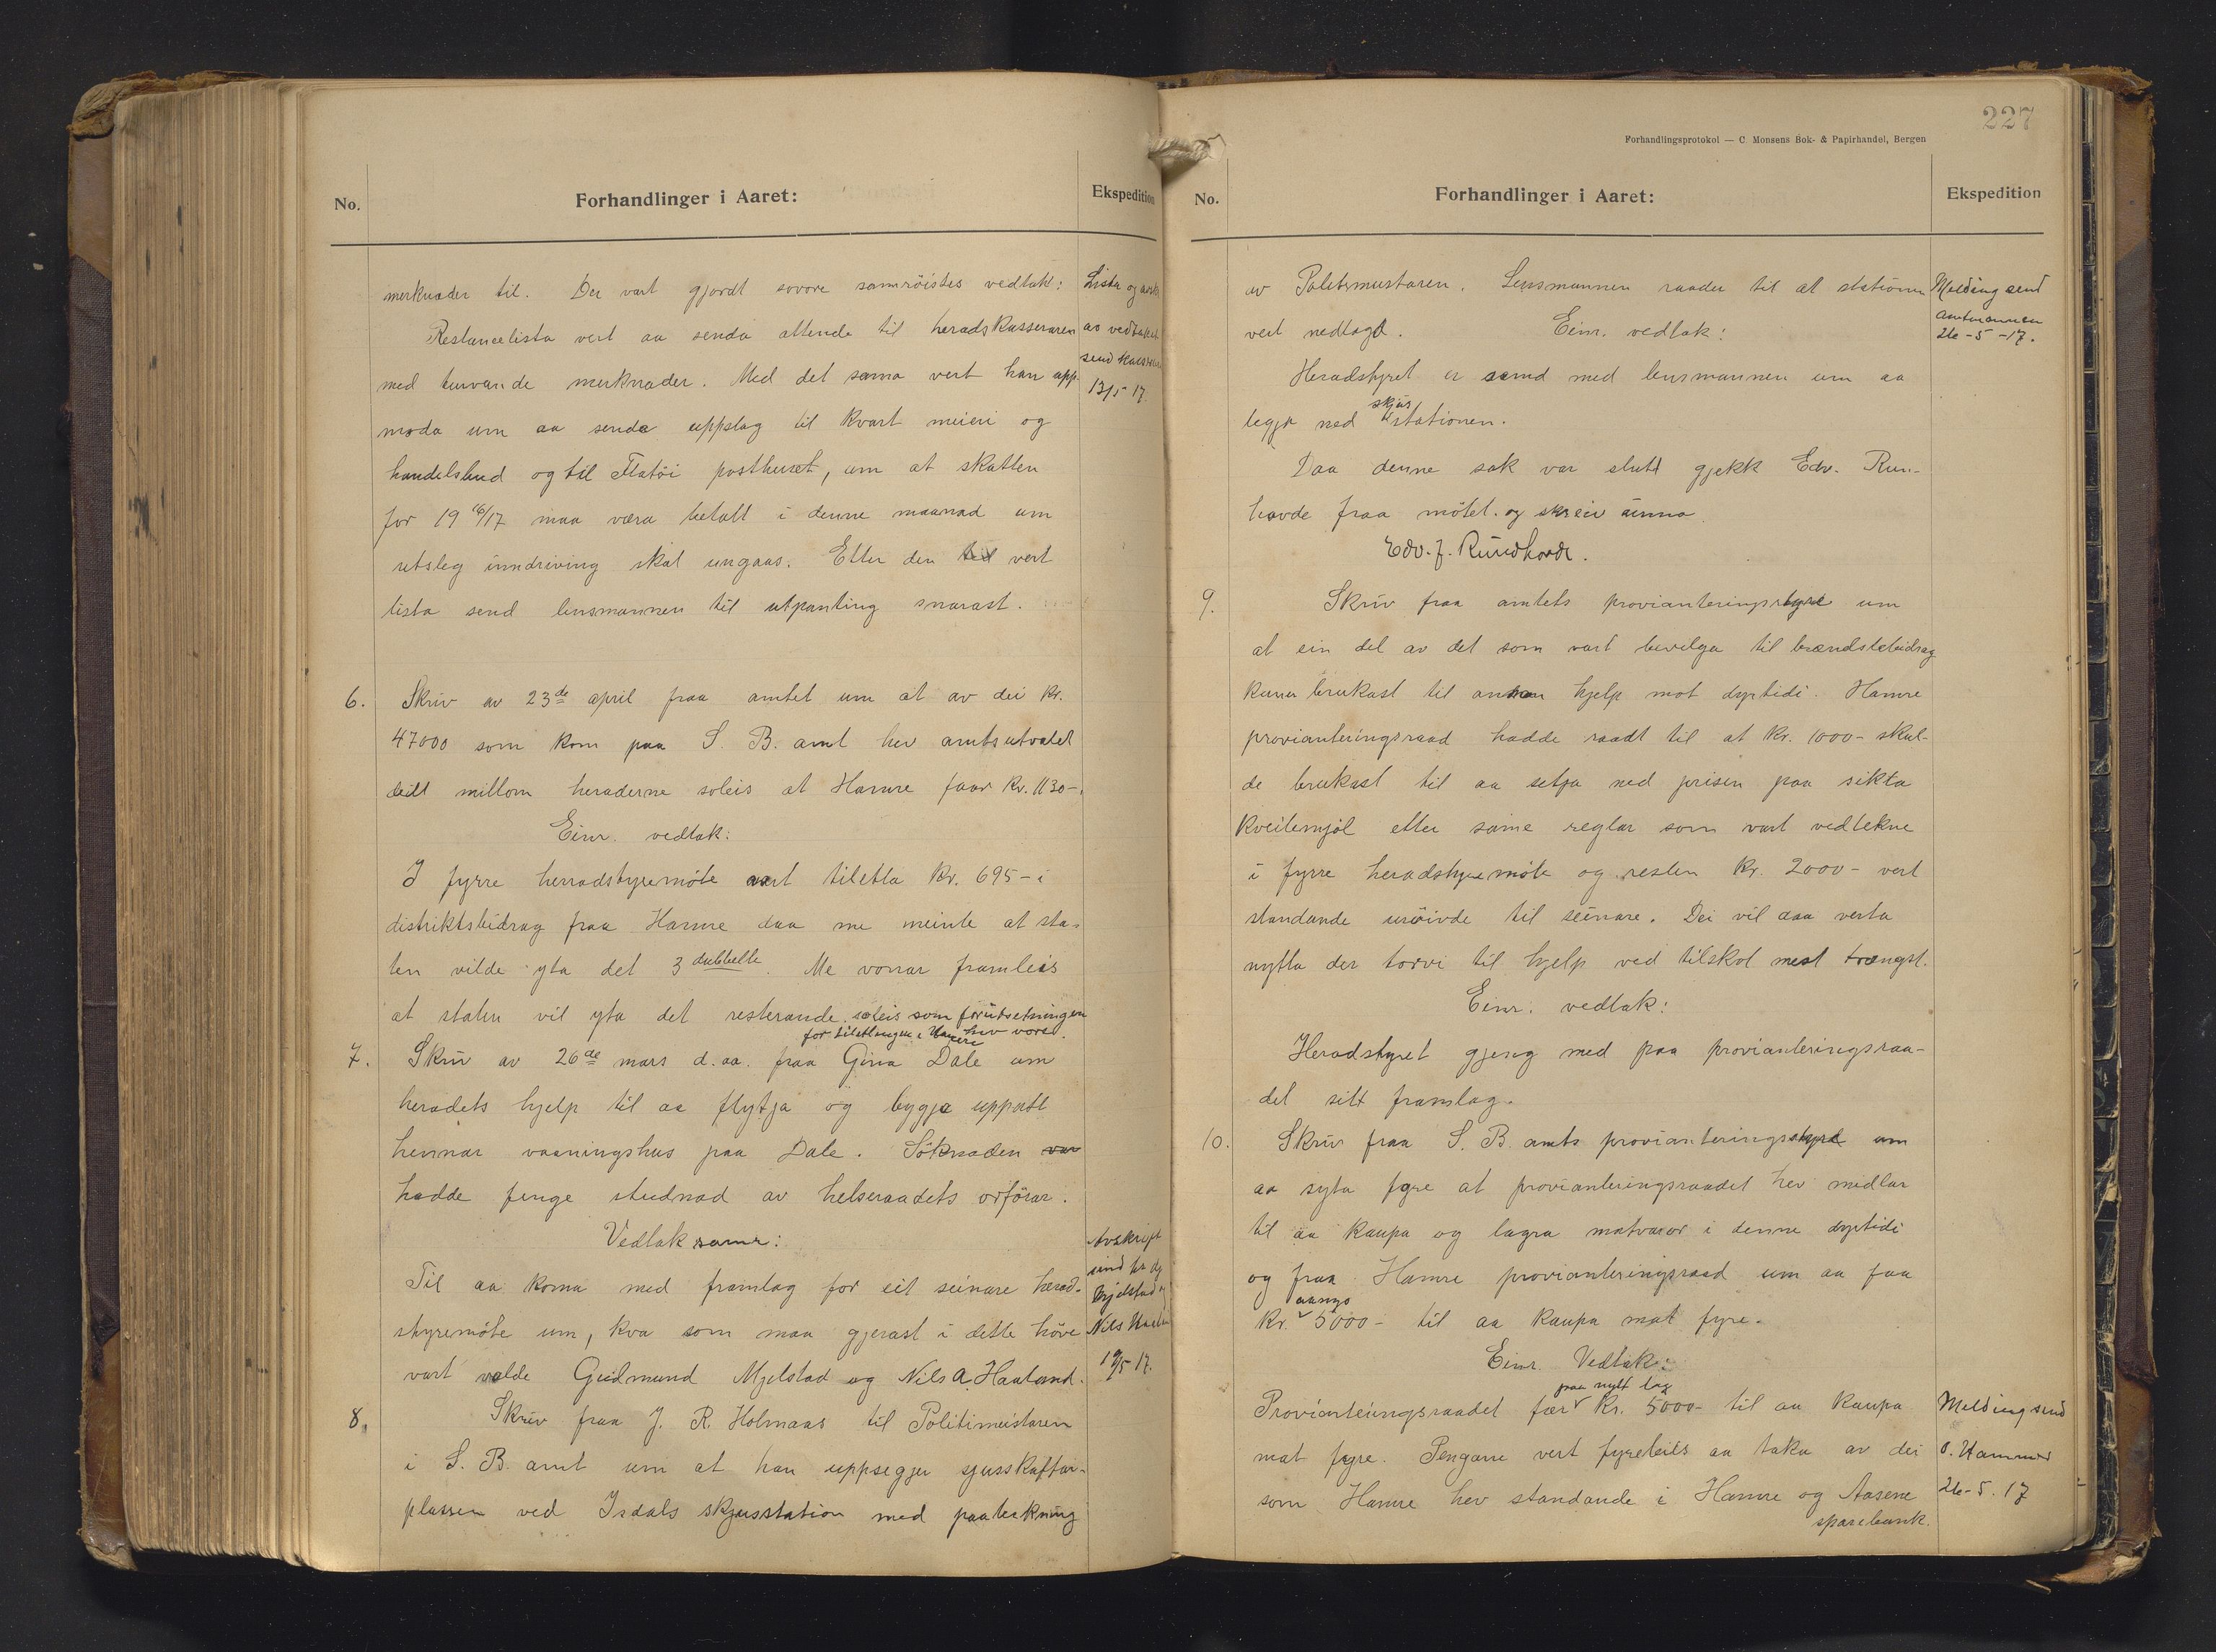 No.
Forhandlinger i Aaret:
Ekspedition
merknader til. Der vart gjordt sovore samröistes vedtak:
Restancelista vert aa senda attende til heradskasseraren
med turvande merknader. Med det sama vert han opp-
moda um aa senda uppslag til kvart meieri og
handelsbud og til Flatöi posthuset, um at skatten
for 19 16/17 maa væra betalt i denne maanad um
utsleg inndriving skal ungaas. Etter den tid vert
lista send lensmannen til utpanting snarast.
Lista og
av vedtaket
send
13/5 17.
6. Skriv av 23de april fraa amtet um at av dei kr.
47000 som kom paa S. B. amt hev amtsutvalet
deilt millom heraderne soleis at Hamre faar kr. 1130-.
Einr. vedtak:
I fyrre herradstyremöte vart tiletla kr. 695- i
distriktsbidrag fraa Hamre daa me meinte at sta-
ten vilde yta det 3 dubbelte. Me vonar framleis
at staten vil yta det resterande. soleis som forutsetningen
for tiletlingen i Hamre hev vore.
7. Skriv av 26de mars d. aa. fraa Gina Dale um
heradets hjelp til aa flytja og bygja uppatt
hennar vaaningshus paa Dale. Söknaden var
hadde fenge studnad av helseraadets orförar.
Vedtak samr:
Til aa koma med framlag for eit seinare herad-
styremöte um, kva som maa gjerast i dette höve
vart valde Gudmund Mjelstad og Nils A. Haaland.
Avskrift
send
Mjelstad og
Nils
19/5 17.
8. Skriv fraa J. R. Holmaas til Politimeistaren
i S. B. amt um at han uppsegjer sjusskaffar-
plassen ved Isdals skjusstation med paateikning
227
Forhandlingsprotokol — C. Monsens Bok- & Papirhandel, Bergen
No.
Forhandlinger i Aaret:
Ekspedition
av Politimeistaren. Lensmannen raader til at stationen
vert nedlagd. Einr. vedtak:
Melding send
amtmannen
26-5-17.
Heradstyret er samd med lensmannen um aa
skjus
leggja ned stationen.
Daa denne sak var slutt gjekk Edv. Run-
hovde fraa mötet. og skreiv unna
Edv. J. Rundhovde.
9. Skriv fraa amtets provianteringsstyre um
at ein del av det som vart bevilga til brændslebidrag
kunn brukast til annan hjelp mot dyrtidi. Hamre
provianteringsraad hadde raadt til at kr. 1000- skul-
de brukast til aa setja ned prisen paa sikta
kveitemjöl etter same reglar som vart vedtekne
i fyrre heradstyremöte og resten kr. 2000- vert
standande uröivde til seinare. Dei vil daa verta
nytta der torvi til hjelp ved tilskot mest trængst.
Einr. vedtak:
Heradstyret gjeng med paa provianteringsraa-
det sitt framlag.
10. Skriv fraa S. B. amts provianteringsstyre um
aa syta fyre at provianteringsraadet hev midlar
til aa kaupa og lagra matvaror i denne dyrtidi
og fraa Hamre provianteringsraad um aa faa
kr. 5000- til aa kaupa mat fyre.
Einr. Vedtak:
paa nytt lag
Provianteringsraadet fær kr. 5000- til aa kaupa
mat fyre. Pengarne vert fyrebeils aa taka av dei
som Hamre hev standande i Hamre og Aasene
sparebank.
Melding send
O. Hammer
26-5. 17